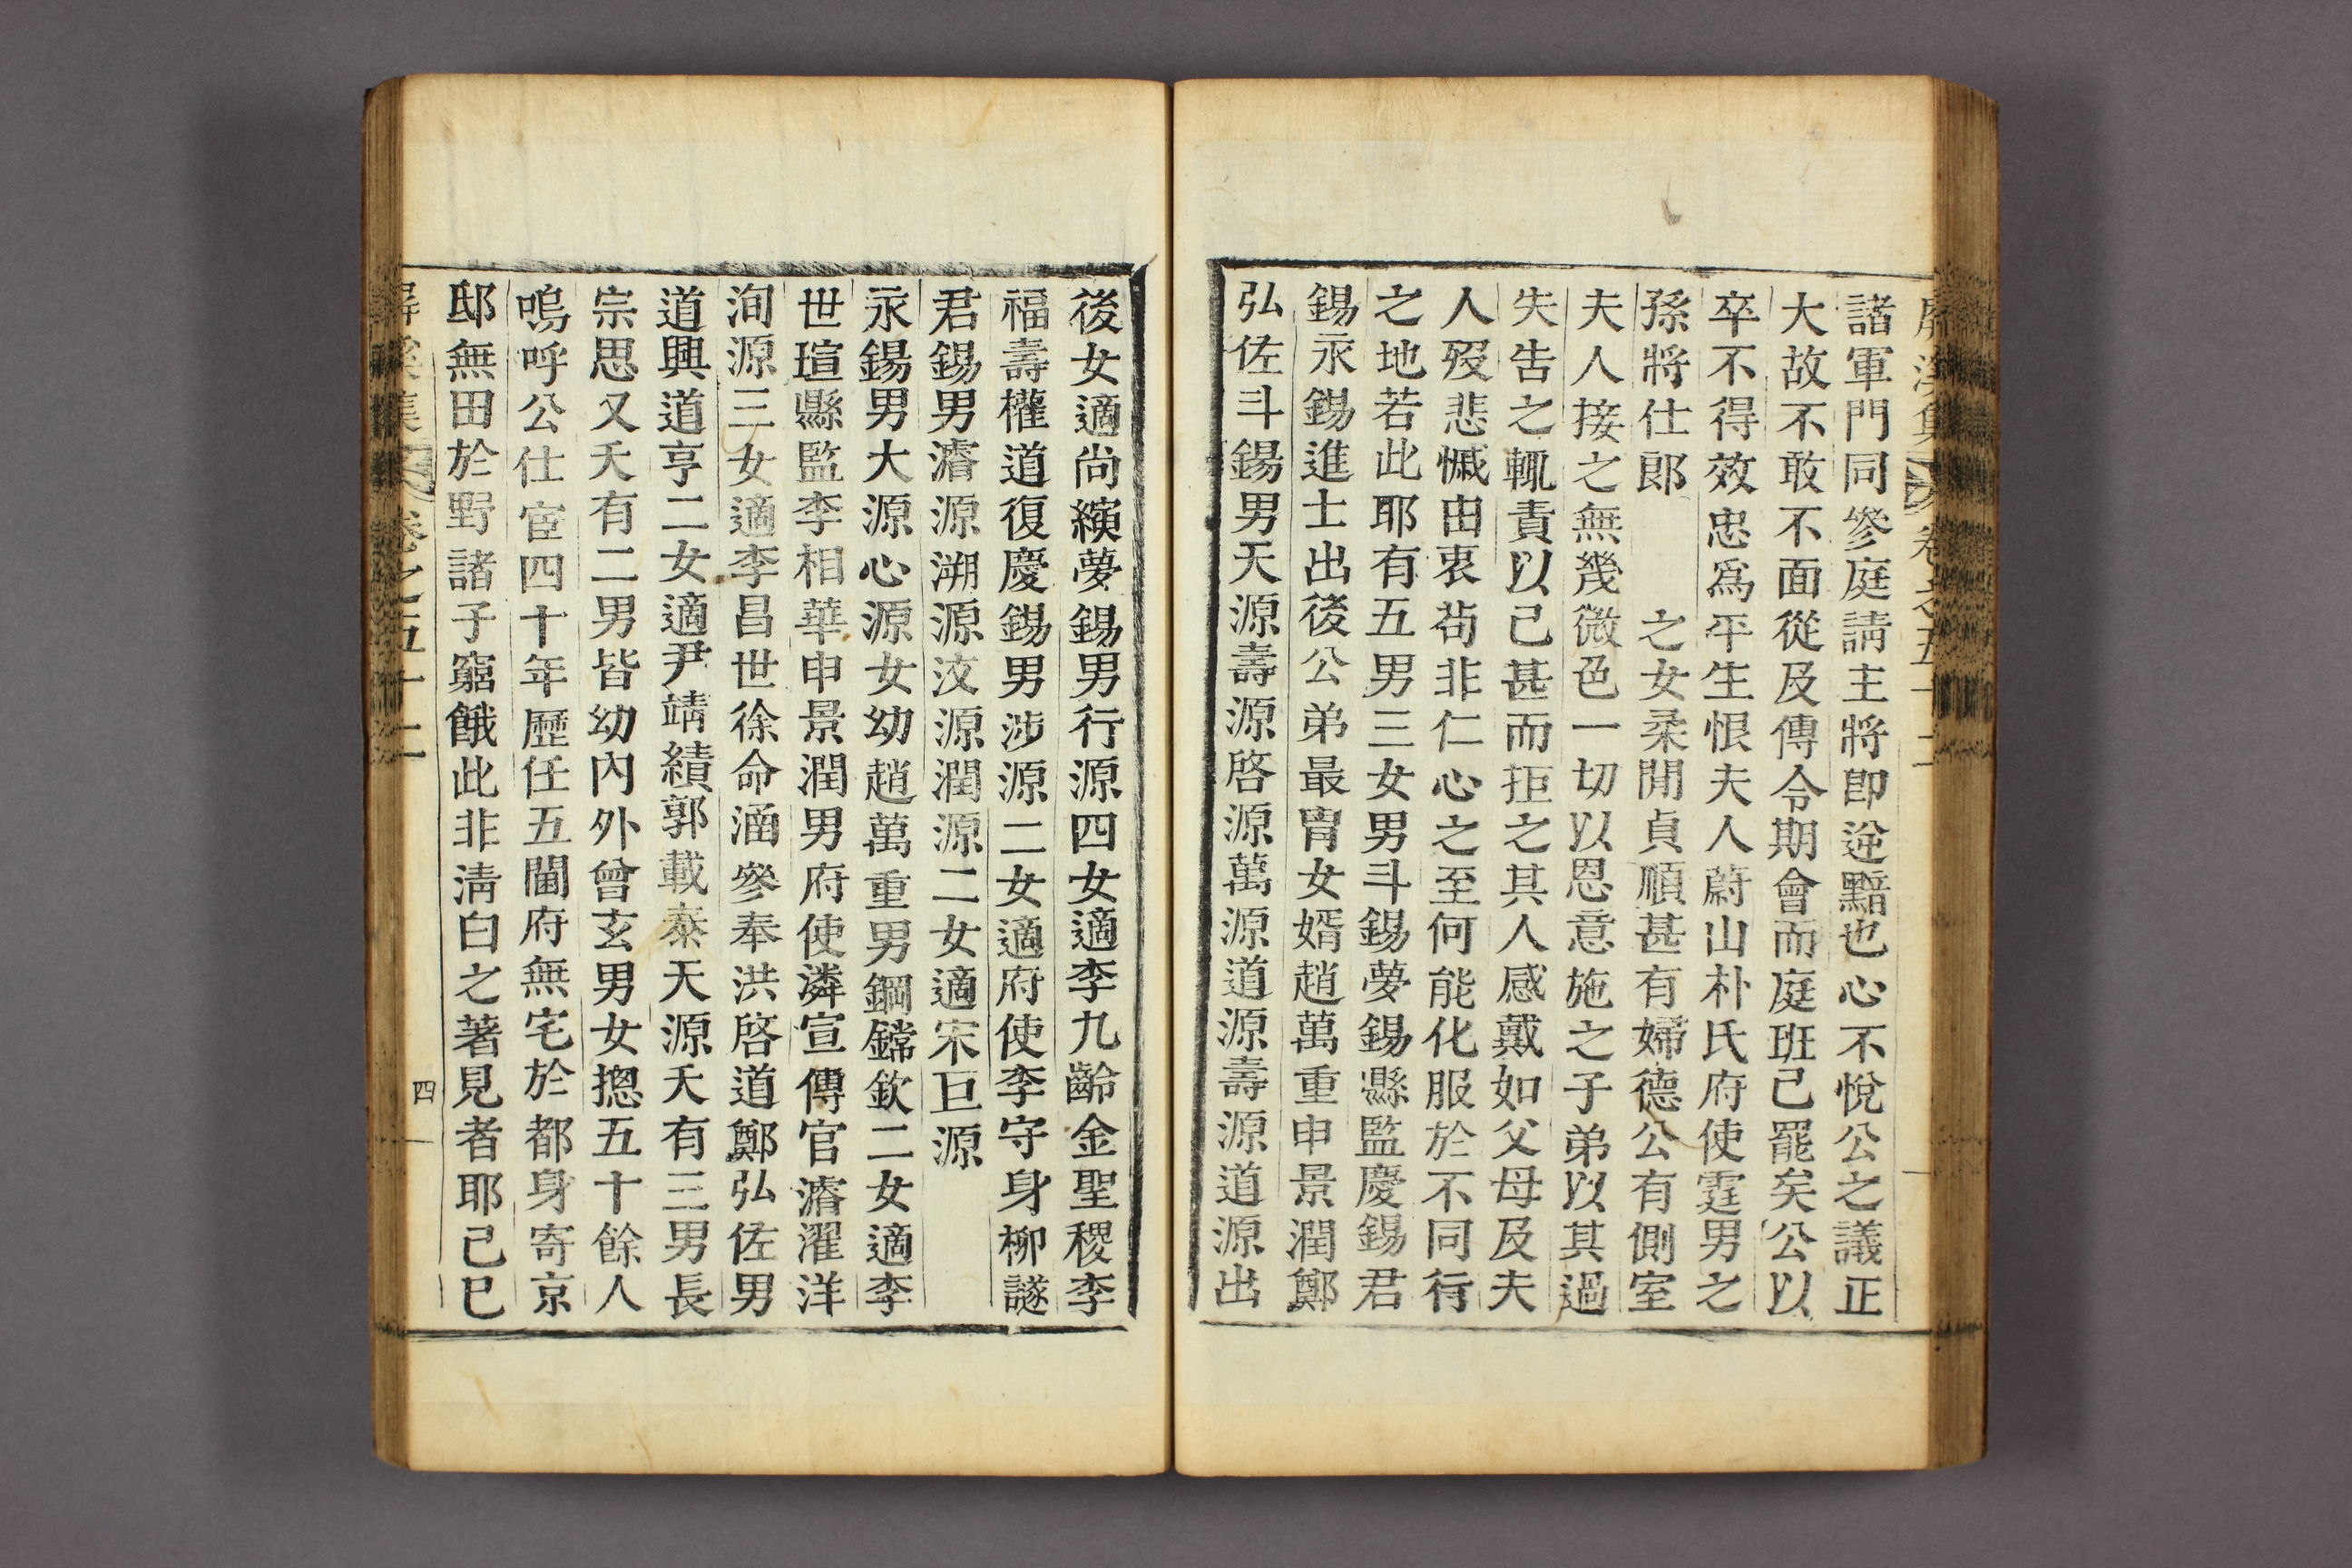 屛溪集 卷之五十二
諸軍門同參庭請主將卽逆黯也心不悅公之議正
大故不敢不面從及傳令期會而庭班已罷矣公以
卒不得效忠爲平生恨夫人蔚山朴氏府使霆男之
孫將仕郞 之女柔閒貞順甚有婦德公有側室
夫人接之無幾微色一切以恩意施之子弟以其過
失告之輒責以己甚而拒之其人感戴如父母及夫
人歿悲慽由衷苟非仁心之至何能化服於不同行
之地若此耶有五男三女男斗錫夢錫縣監慶錫君
錫永錫進士出後公弟最胄女婿趙萬重申景潤鄭
弘佐斗錫男天源壽源啓源萬源道源壽源道源出
後女適尙縯夢錫男行源四女適李九齡金聖稷李
福壽權道復慶錫男涉源二女適府使李守身柳謎
君錫男濬源溯源汶源潤源二女適宋巨源
永錫男大源心源女幼趙萬重男鋼鏛欽二女適李
世瑄縣監李相華申景潤男府使潾宣傳官濬濯洋
洵源三女適李昌世徐命涵參奉洪啓道鄭弘佐男
道興道亨二女適尹靖績郭載泰天源夭有三男長
宗思又夭有二男皆幼內外曾玄男女摠五十餘人
嗚呼公仕宦四十年歷任五閫府無宅於都身寄京
邸無田於野諸子窮餓此非淸白之著見者耶己巳
屛溪集 卷之五十二 四